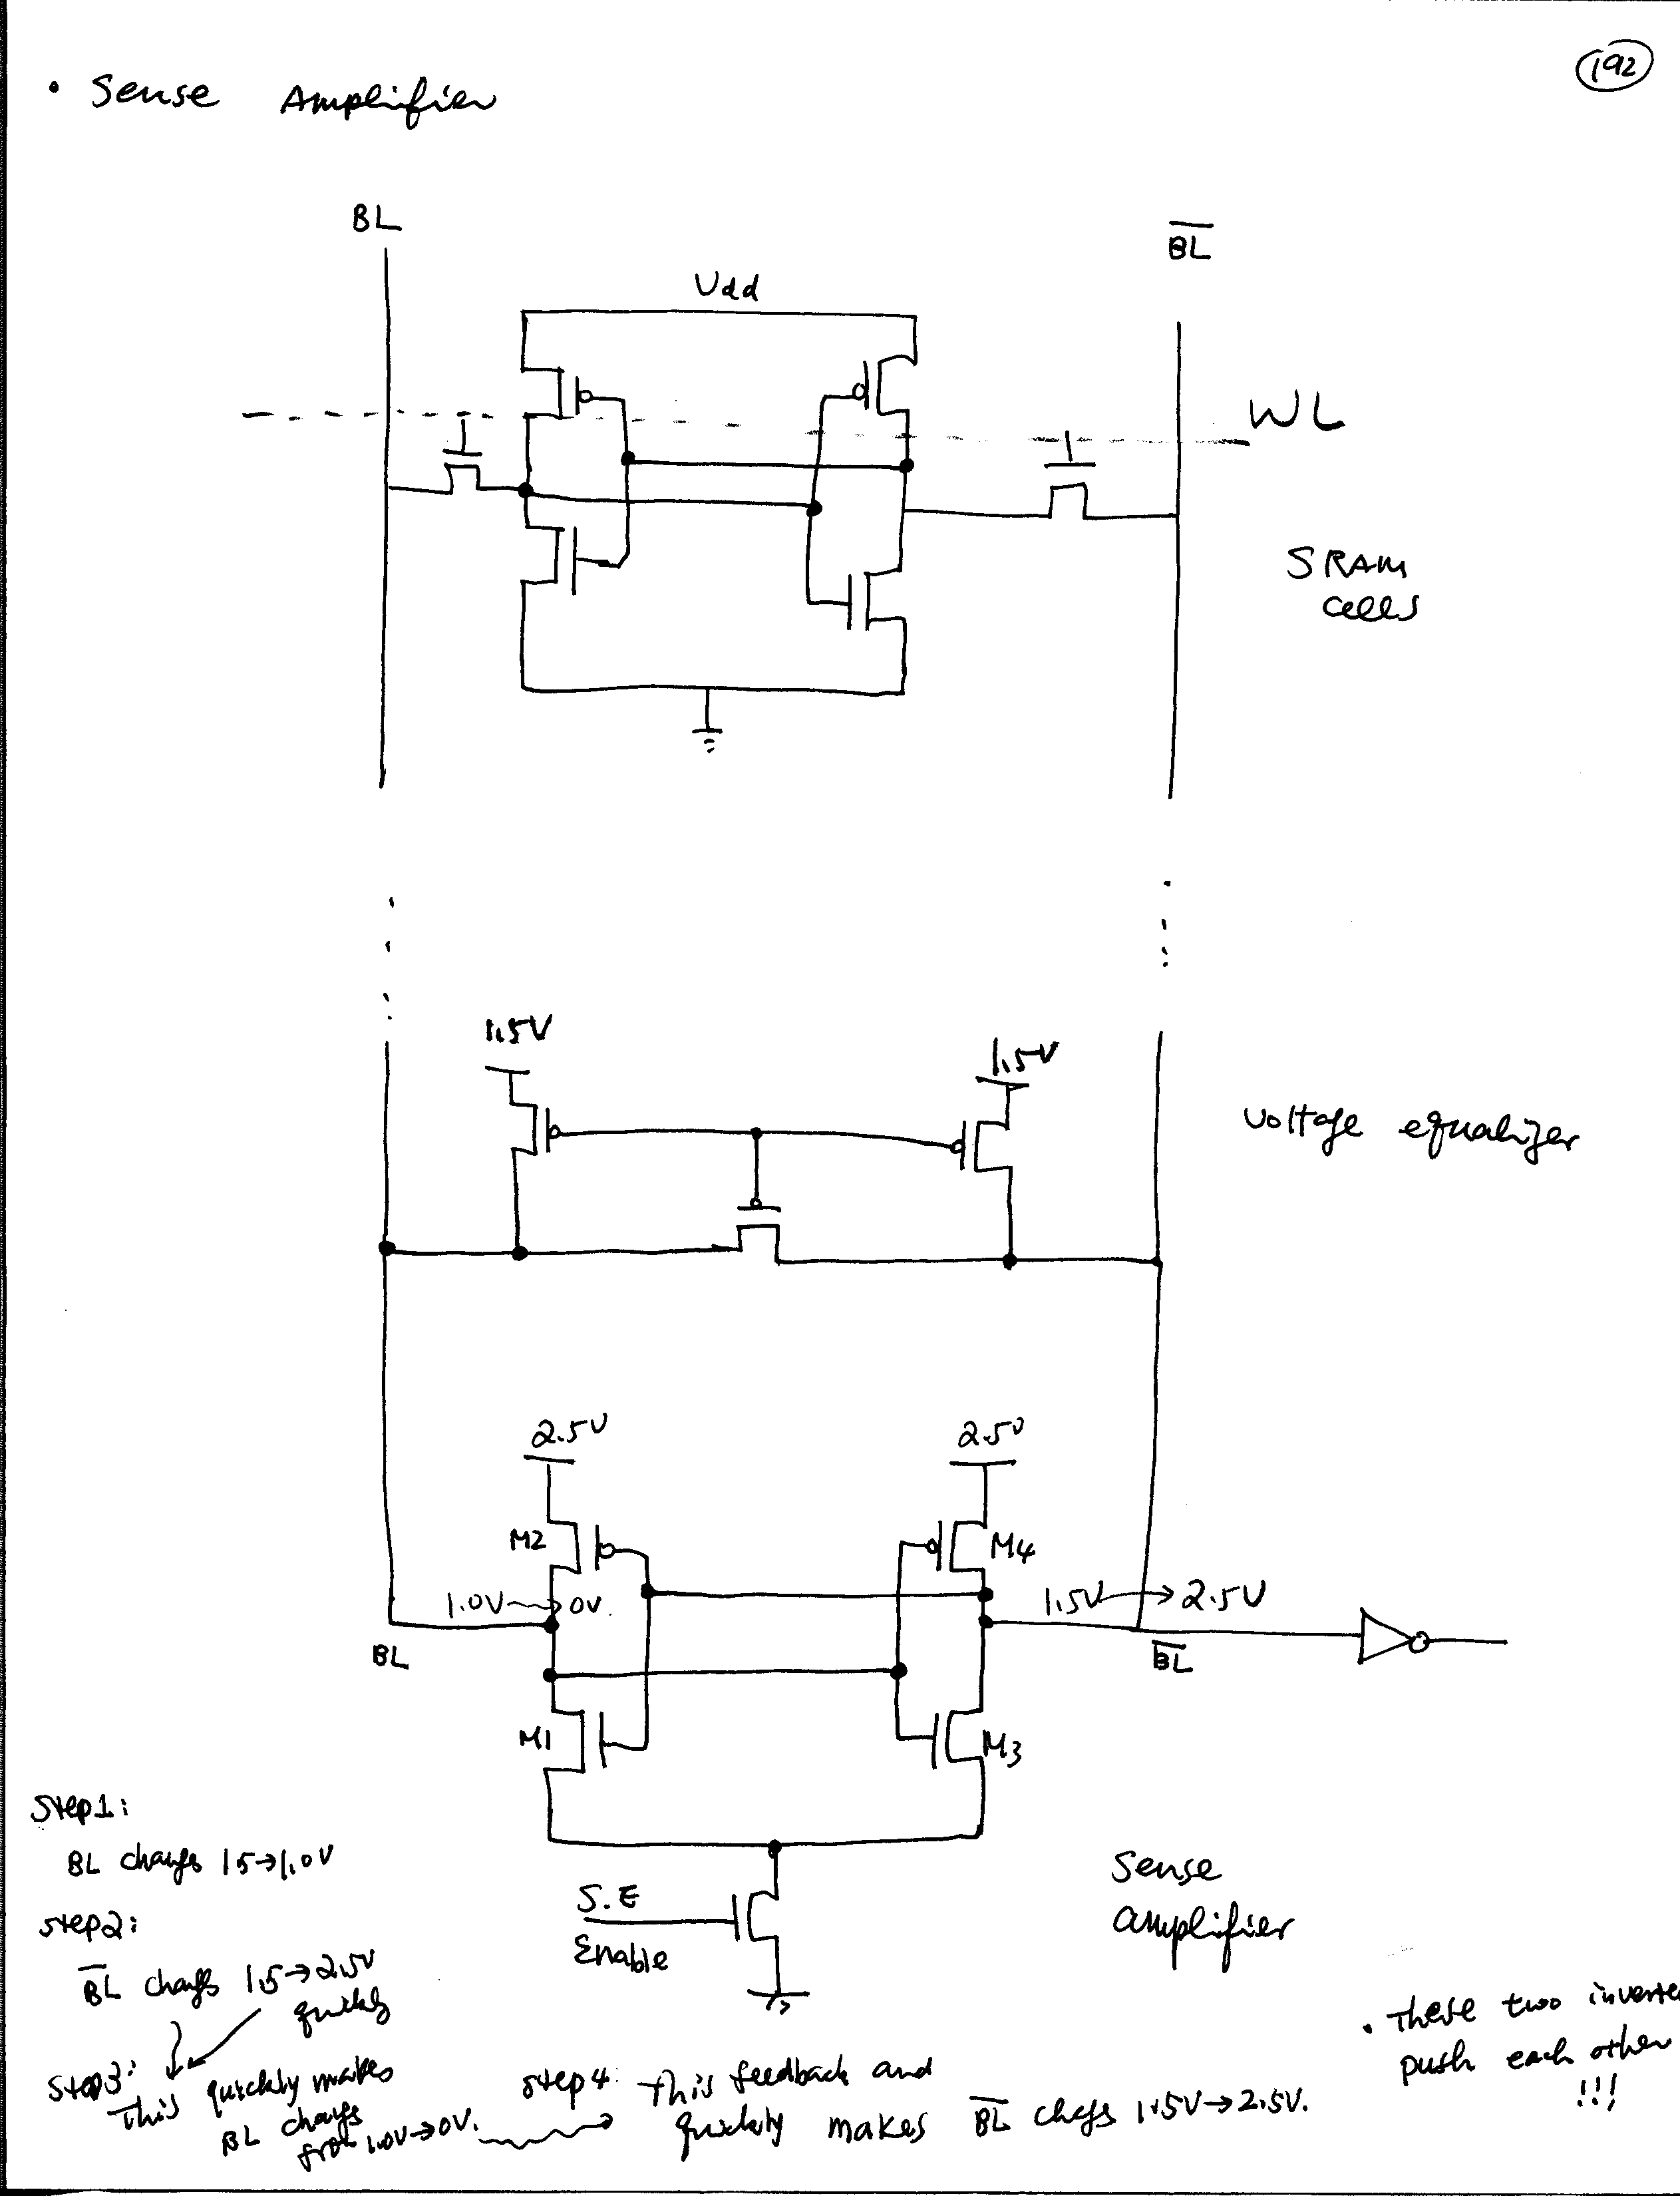 192
• Sense Amplifier
BL
B̅L̅
Vdd
WL
SRAM
cells
1.5V
1.5V
Voltage equalizer
2.5V
2.5V
M2
M4
1.0V → 0V
1.5V → 2.5V
BL
B̅L̅
M1
M3
Step1:
BL changes 1.5→1.0V
S.E
Enable
Sense
amplifier
Step2:
B̅L̅ changes 1.5→2.5V
quickly
Step3:
This quickly makes
BL changes
from 1.0V→0V.
Step4: This feedback and
quickly makes B̅L̅ chgs 1.5V→2.5V.
• These two inverte
push each other
!!!